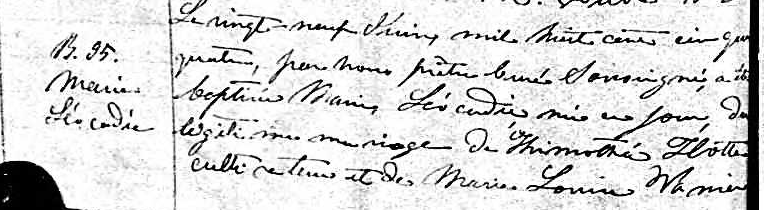 B. 95.
Marie
Léocadie
Le vingt neuf Juin, mil huit cent cinqua
quatre, par nous prêtre curé Soussigné, a été
baptisée Marie, Léocadie née ce jour, du
légitime mariage de Thimothé
cultivateur et de Marie Louise